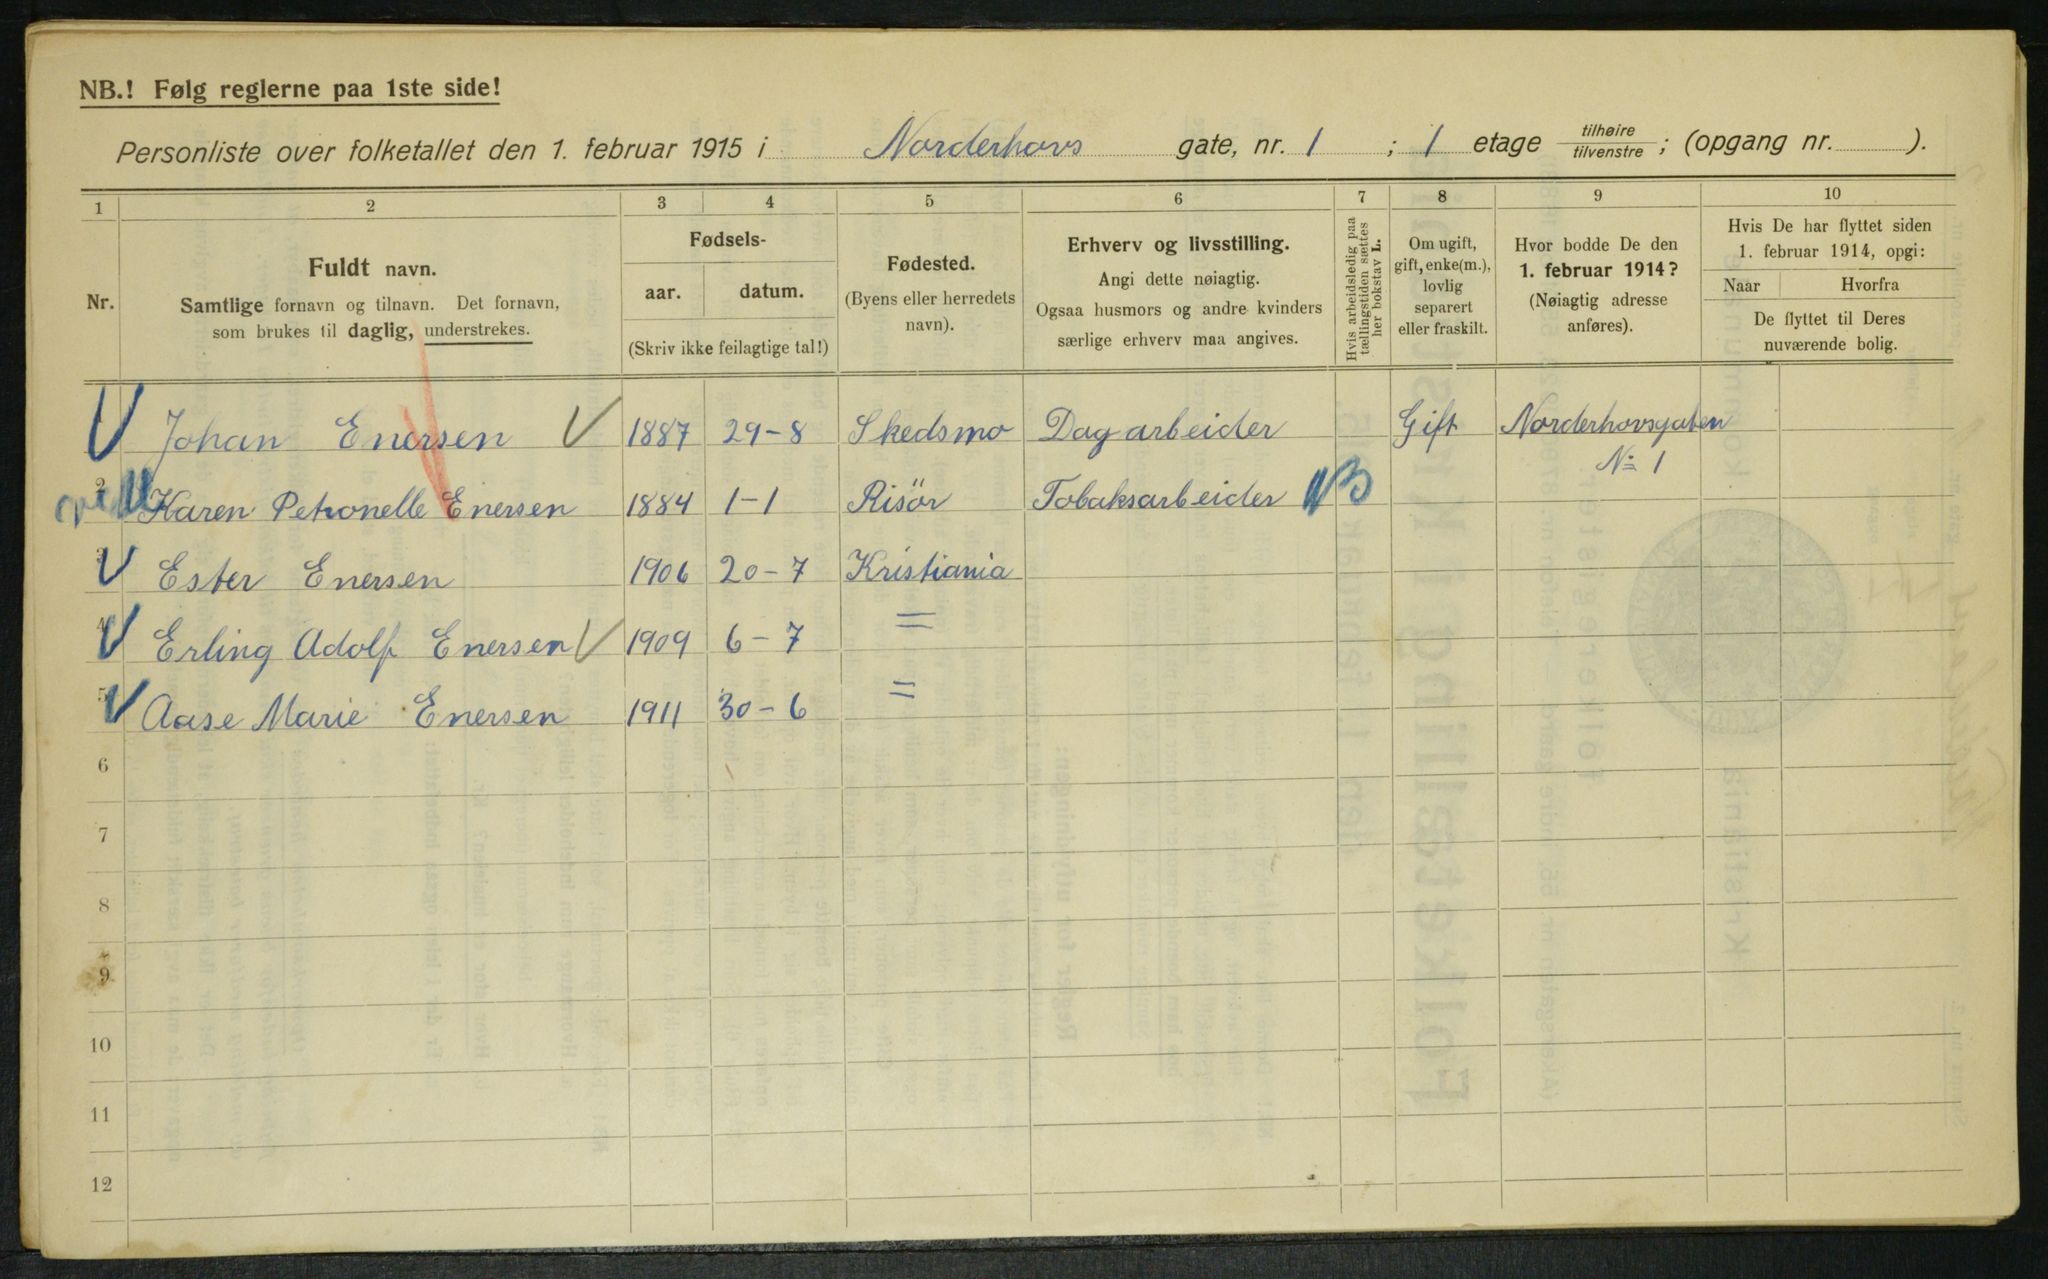 NB.! Følg reglerne paa 1ste side!
Personliste over folketallet den 1. februar 1915 i Norderhovs gate, nr. 1 ; 1 etage tilhøire tilvenstre ; (opgang nr. ).
1 2 3 4 5 6 7 8 9 10
Nr.
Fuldt navn.
Samtlige fornavn og tilnavn. Det fornavn,
som brukes til daglig, understrekes.
Fødsels-
aar. datum.
(Skriv ikke feilagtige tal!)
Fødested.
(Byens eller herredets
navn).
Erhverv og livsstilling.
Angi dette nøiagtig.
Ogsaa husmors og andre kvinders
særlige erhverv maa angives.
Hvis arbeidsledig paa
tællingstiden sættes
her bokstav L.
Om ugift,
gift, enke(m.),
lovlig
separert
eller fraskilt.
Hvor bodde De den
1. februar 1914?
(Nøiagtig adresse
anføres).
Hvis De har flyttet siden
1. februar 1914, opgi:
Naar Hvorfra
De flyttet til Deres
nuværende bolig.
Johan Enersen 1887 29-8 Skedsmo Dagarbeider Gift Norderhovsgaten
№ 1
2 Karen Petronelle Enersen 1884 1-1 Risör Tobaksarbeider
3 Ester Enersen 1906 20-7 Kristiania
4 Erling Adolf Enersen 1909 6-7 =
5 Aase Marie Enersen 1911 30-6 =
6
7
8
9
10
11
12